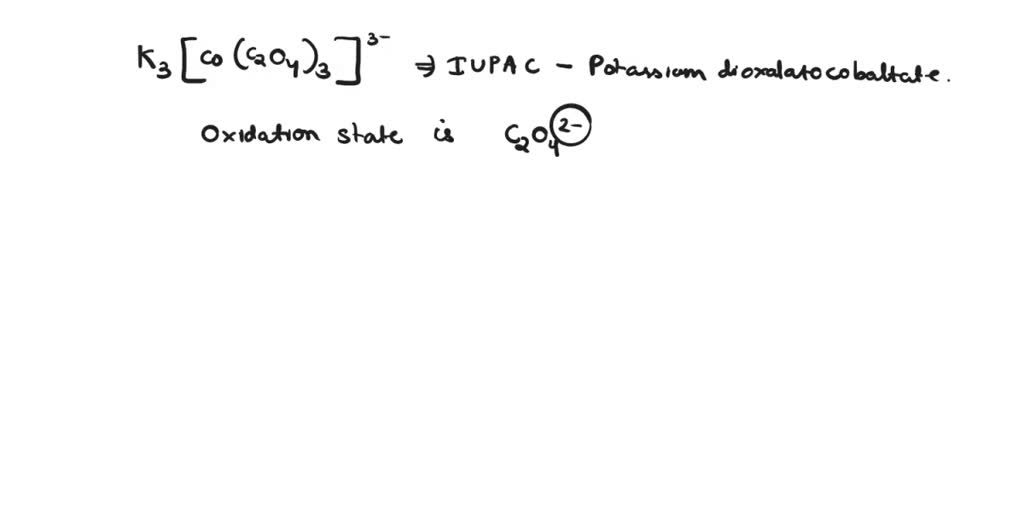 K₃[Co(C₂O₄)₃]³⁻ ⇒ IUPAC - Potassium dioxalatocobaltate.
Oxidation state is C₂O₄²⁻